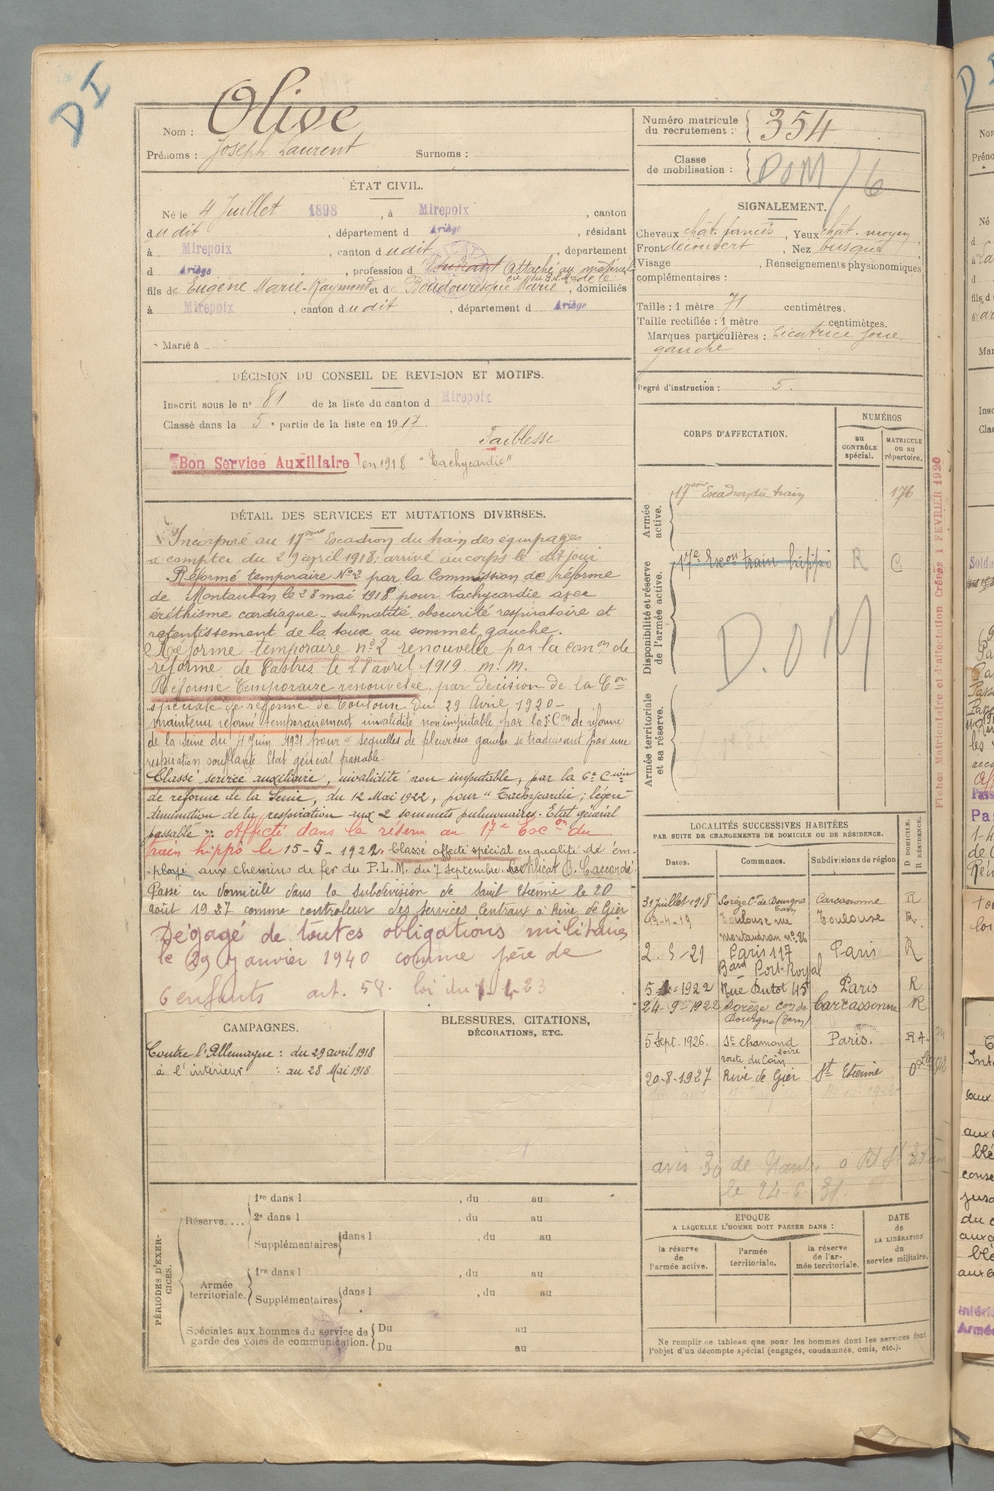 DI
Nom : Olive
Prénoms : Joseph Laurent Surnoms :
Numéro matricule
du recrutement : 354
Classe
de mobilisation : DOM/6
ÉTAT CIVIL.
Né le 4 Juillet 1898, à Mirepoix, canton
dudit, département d Ariège, résidant
à Mirepoix, canton dudit, département
d Ariège, profession d Etudiant Attaché au matériel
fils de Eugène Marie-Raymond et d Boudouresque Marie, domiciliés
à Mirepoix, canton dudit, département d Ariège
Marié à
SIGNALEMENT.
Cheveux chât. foncés, Yeux chât. moyen
Front découvert, Nez busqué
Visage , Renseignements physionomiques
complémentaires :
Taille : 1 mètre 71 centimètres.
Taille rectifiée : 1 mètre centimètres.
Marques particulières : Cicatrice joue
gauche
Degré d'instruction : 5.
DÉCISION DU CONSEIL DE REVISION ET MOTIFS.
Inscrit sous le n° 81 de la liste du canton d Mirepoix
Classé dans la 5e partie de la liste en 1917
Faiblesse
Bon Service Auxiliaire en 1918 "Tachycardie"
DÉTAIL DES SERVICES ET MUTATIONS DIVERSES.
Incorporé au 17ème Escadron du train des équipages
à compter du 29 avril 1918. arrivé au corps le dit jour
Réformé temporaire N°2 par la Commission de réforme
de Montauban le 28 mai 1918 pour tachycardie avec
éréthisme cardiaque. submatité. obscurité respiratoire et
retentissement de la toux au sommet gauche.
Réforme temporaire n°2 renouvelée par la Con on de
réforme de Castres le 28 avril 1919. m. m.
Réforme temporaire renouvelée par décision de la Con
spéciale de réforme de Toulouse du 29 Avril 1920 -
Maintenu réformé temporairement invalidité non imputable par la 5e Con de réforme
de la Seine du 4 Juin 1921 pour séquelles de pleurésie gauche se traduisant par une
respiration soufflante Etat général passable
Classé service auxiliaire, invalidité non imputable, par la 6e C ion
de réforme de la Seine, du 12 Mai 1922, pour "Tachycardie ; légère
diminution de la respiration aux 2 sommets pulmonaires. Etat général
passable". Affecté dans la réserve au 17e Esc on du
Train hippo le 15-5-1922. Classé affecté spécial en qualité de em-
ployé aux chemins de fer du P.L.M. du 7 septembre.
Passé en domicile dans la subdivision de Saint Etienne le 20
août 1927 comme controleur des services Centraux à Rive de Gier
Dégagé de toutes obligations militaires
le 29 janvier 1940 comme père de
6 enfants art. 58. loi du 1-4-23
CORPS D'AFFECTATION.
NUMÉROS
AU CONTRÔLE spécial.
MATRICULE ou au répertoire.
Armée active.
17eme Escadron du train 176
Disponibilité et réserve de l'armée active.
17e Escon train hippo R C
D.OM
Armée territoriale et sa réserve.
Fiches Matriculaire et d'affectation Créées 1 FEVRIER 1920
LOCALITÉS SUCCESSIVES HABITÉES
PAR SUITE DE CHANGEMENTS DE DOMICILE OU DE RÉSIDENCE.
Dates. Communes. Subdivisions de région D DOMICILE. R RÉSIDENCE.
31 juillet 1918 Sorèze Con de Dourgne Tarn Carcassonne R
Toulouse rue Montaudran n° 86 Toulouse R.
2. 5-21 Paris 117 Bard Port-Royal Paris R
1922 Rue Dutot 45 Paris R
24-9-1922 Sorèze con de Dourgne (Tarn) Carcassonne R
5 Sept. 1926. St Chamond Loire route du Coin Paris. R
20-8-1927 Rive de Gier St Etienne D
avis de
le 24-6-31
CAMPAGNES.
Contre l'Allemagne : du 29 avril 1918
à l'intérieur : au 28 Mai 1918
BLESSURES, CITATIONS,
DÉCORATIONS, ETC.
PÉRIODES D'EXERCICES.
Réserve....
1re dans l , du au
2e dans l , du au
Supplémentaires dans l , du au
Armée territoriale.
1re dans l , du au
Supplémentaires dans l , du au
Spéciales aux hommes du service de
garde des voies de communication.
Du au
Du au
EPOQUE
A LAQUELLE L'HOMME DOIT PASSER DANS :
la réserve de l'armée active.
l'armée territoriale.
la réserve de l'armée territoriale.
DATE DE LA LIBÉRATION du service militaire.
Ne remplir ce tableau que pour les hommes dont les services font
l'objet d'un décompte spécial (engagés, condamnés, omis, etc.).